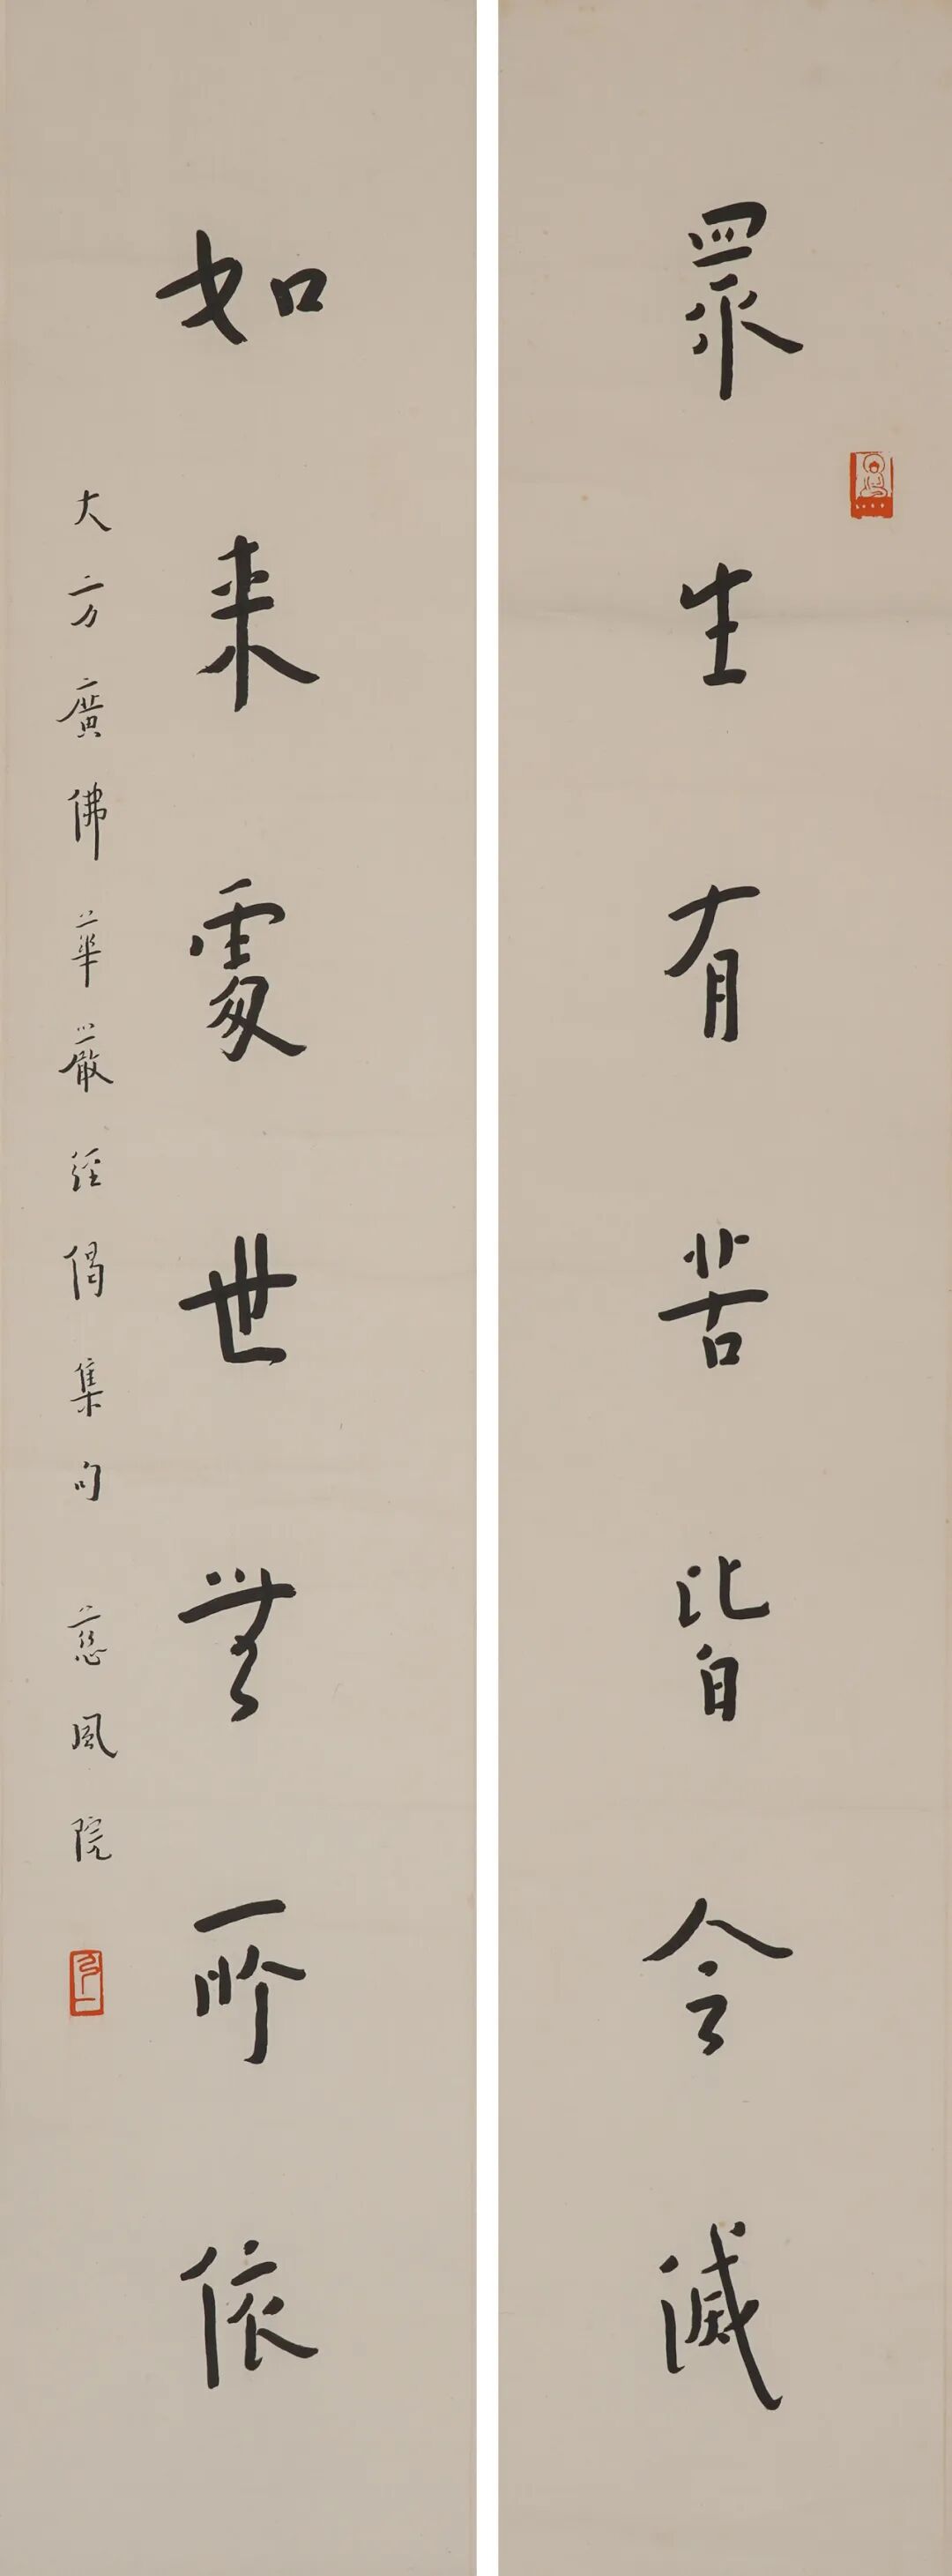 眾生有苦皆令滅
如来處世無所依
大方廣佛華嚴經偈集句 慈風院